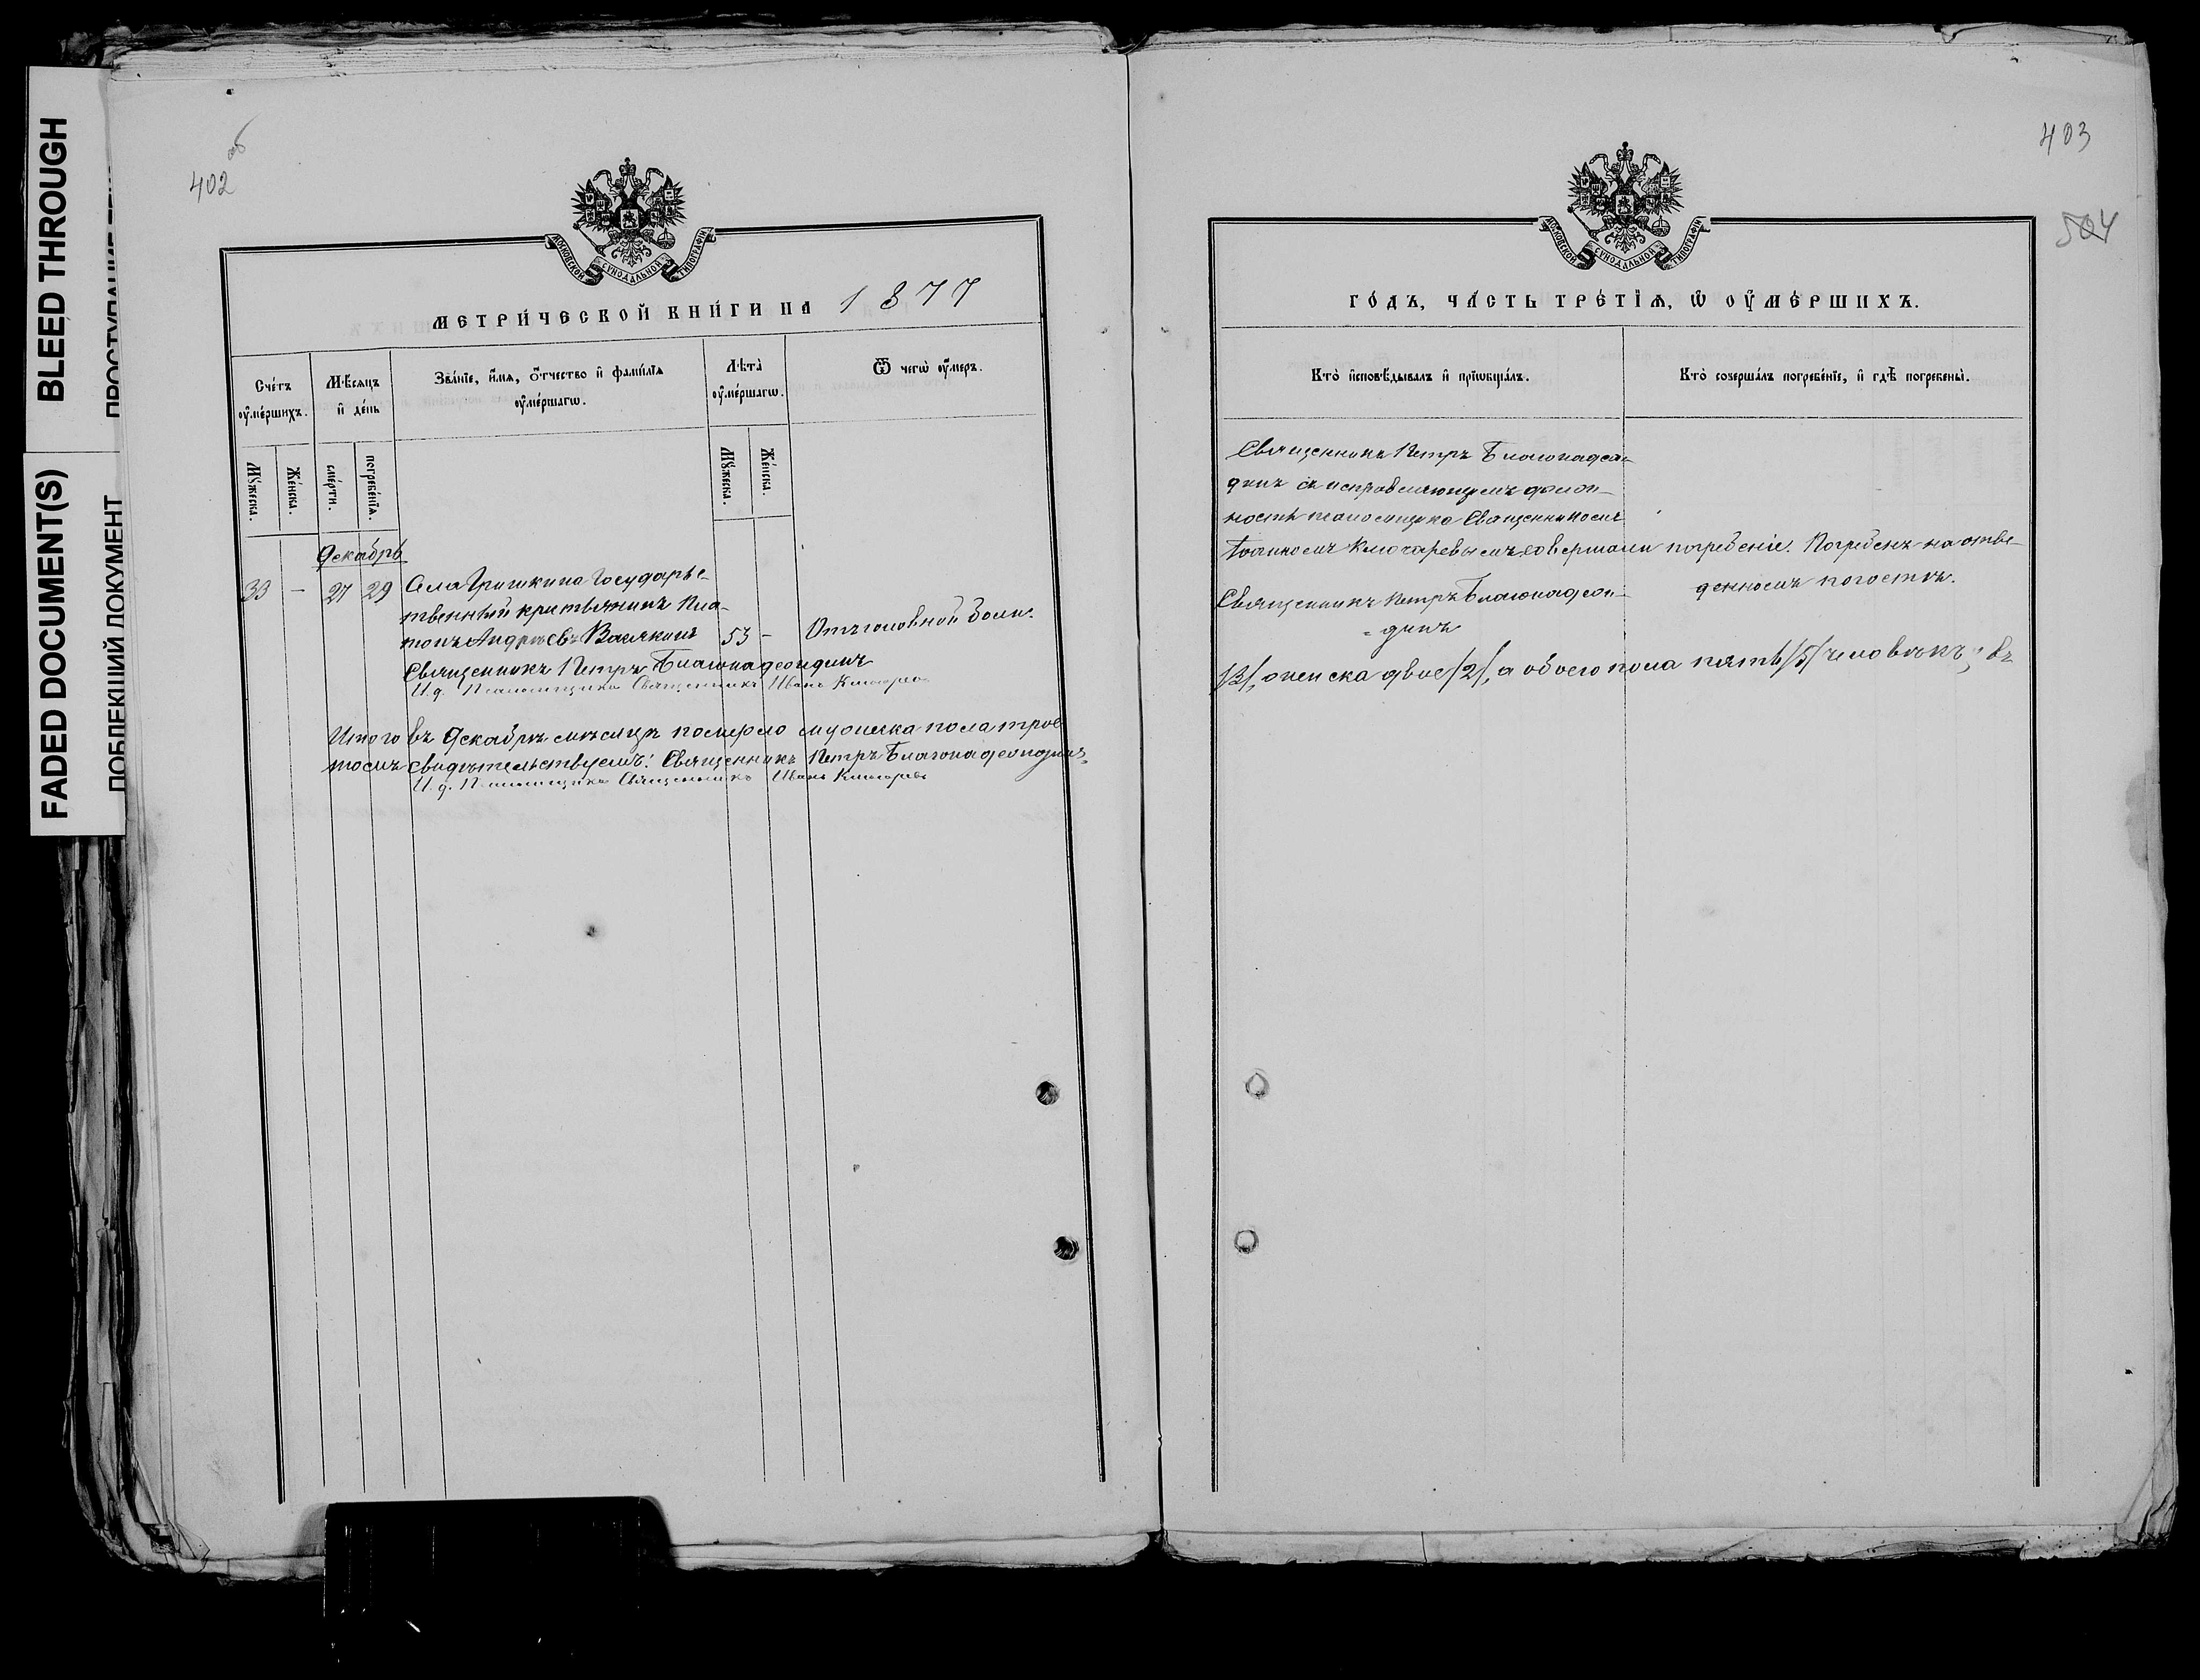 BLEED THROUGH
FADED DOCUMENT(S)
ПОБЛЕКШИЙ ДОКУМЕНТ
402 об
МОСКОВСКОЙ СѴНОДАЛЬНОЙ ТИПОГРАФІИ
МЕТРИ́ЧЕСКОЙ КНИ́ГИ НА 1877
Сче́тъ ᲂу҆ме́ршихъ.
Мѣ́сяцъ и҆ де́нь
Зва́нїе, и҆́мѧ, ѻ҆́тчество и҆ фамі́лїѧ ᲂу҆ме́ршагѡ.
Лѣ́та ᲂу҆ме́ршагѡ.
Ѿ чегѡ̀ ᲂу҆́меръ.
Мꙋ́жеска.
Же́нска.
сме́рти.
погребе́нїѧ.
Мꙋ́жеска.
Же́нска.
Декабрь
33 – 27 29 Села Гришкина Государс-
твенный крестьянинъ Пла-
тонъ Андреевъ Валякинъ 53 – Отъ головной боли.
Священникъ Петръ Благонадеждинъ
И. д. Псаломщика Священникъ Иванъ Ключаревъ
Итого въ Декабрѣ мѣсяцѣ померло мужеска пола трое
томъ свидѣтельствуемъ: Священникъ Петръ Благонадеждинъ,
И. д. Псаломщика Священникъ Иванъ Ключаревъ
403
504
МОСКОВСКОЙ СѴНОДАЛЬНОЙ ТИПОГРАФІИ
ГО́ДЪ, ЧА́СТЬ ТРЕ́ТЇѦ, Ѡ҆ ОУ҆МЕ́РШИХЪ.
Кто̀ и҆сповѣ́дывалъ и҆ прїѡбща́лъ.
Кто̀ соверша́лъ погребе́нїе, и҆ гдѣ̀ погребены̀.
Священникъ Петръ Благонадеж-
динъ съ исправляющимъ долж-
ность псаломщика Священникомъ
Іоанномъ Ключаревымъ совершали погребеніе. Погребенъ на отве-
Священникъ Петръ Благонадеж- денномъ погостѣ.
= динъ
/3/, женска двое /2/, а обоего пола пять /5/ человѣкъ; въ